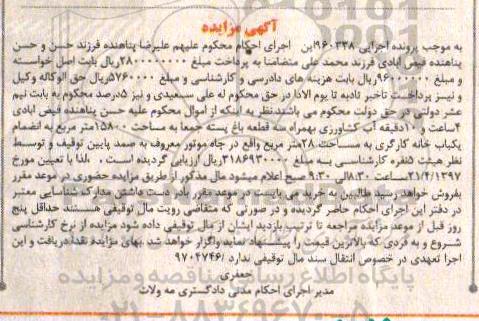 آگهی مزایده
به موجب پرونده اجرایی ۹۶۰۳۳۸این اجرای احکام محکوم علیهم علیرضا پناهنده فرزند حسن و حسن
پناهنده فیض ابادی فرزند محمد علی متضامنا به پرداخت مبلغ ۲۸۰۰۰۰۰۰۰۰ریال بابت اصل خواسته
و مبلغ ۹۶۰۰۰۰۰۰ریال بابت هزینه های دادرسی و کارشناسی و مبلغ ۵۷۶۰۰۰۰ریال حق الوکاله وکیل
و نیسز پرداخت تاخیر تادیه تا یوم الادا در حق محکوم له علی سعیدی و نیز ۵درصد محکوم به بابت نیم
عشر دولتی در حق دولت محکوم می باشند.نظر به اینکه از اموال محکوم علیه حسن پناهنده فیض ابادی
۴ساعت و ۱۰دقیقه آب کشاورزی بهمراه سه قطعه باغ پسته جمعا به مساحت ۱۵۸۰۰متر مربع به انضمام
یکباب خانه کارگری به مساحت ۲۸متر مربع واقع در چاه موتور معروف به صمد پایین توقیف و توسط
نظر هیئت ۵نفره کارشناسی به مبلغ ۳۱۸۶۹۳۰۰۰۰ریال ارزیابی گردیده است . .لذا با تعیین مورخ
۲۱/۴/۱۳۹۷ساعت ۸:۳۰الی ۹:۳۰ صبح اعلام میشود مال مذکور از طریق مزایده حضوری در موعد مقرر
بفروش خواهد رسید طالبین به خرید می بایست در موعد مقرر بادر دست داشتن مدارک شناسایی معتبر
در دفتر این اجرای احکام حاضر گردیده و در صورتی که متقاضی رویت مال توقیفی هستند حداقل پنج
روز قبل از موعد مزایده مراجعه تا ترتیب بازدید ایشان از مال توقیفی داده شود مزایده از نرخ کارشناسی
شروع و به فردی که بالاترین قیمت را پیشنهاد نماید واگزار خواهد شد .بهای مزایده نقدا دریافت و این
اجرا تعهدی در خصوص انتقال سند مال توقیفی ندارد ۹۷۰۴۷۴۶/
جعفری
مدیر اجرای احکام مدنی دادگستری مه ولات
پایگاه اطلاع رسانی مناقصه و مزایده
۰۲۱-۸۸۳۴۹۶۷۰-۵